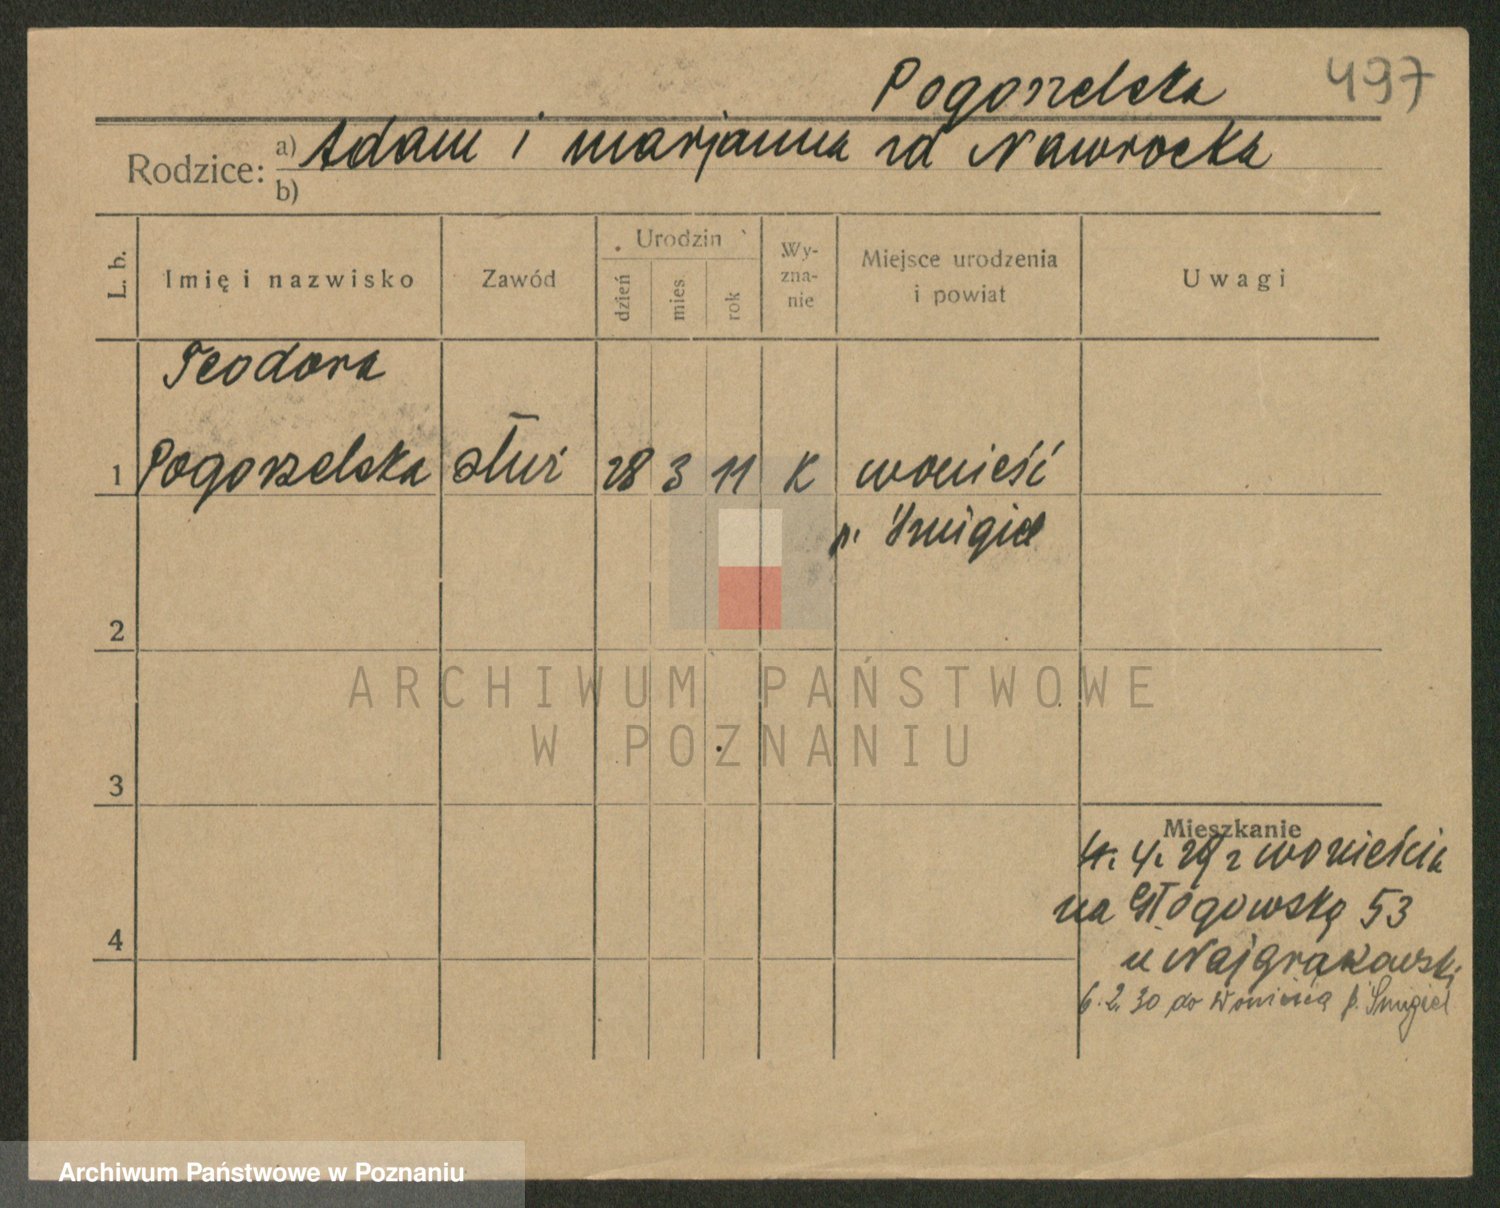 Pogorzelska 497
Rodzice: a) Adam i Marjanna zd Nawrocka
b)
L. b. Imię i nazwisko Zawód Urodzin dzień mies. rok Wy-zna-nie Miejsce urodzenia i powiat Uwagi
Teodora
1 Pogorzelska służ 28 3 11 K Wonieść
p. Śmigiel
2
ARCHIWUM PAŃSTWOWE
W POZNANIU
3
Mieszkanie
4. 29 z Wonieścia
na Głogowską 53
4
u Najgrakowski
6.2.30 do Wonieścia p. Śmigiel
Archiwum Państwowe w Poznaniu